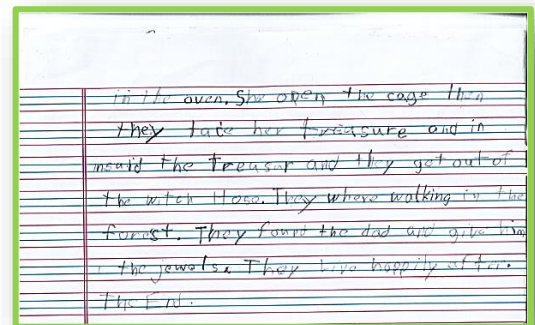 in the oven. She open the cage then
they take her treasure and in
the treasur and they get out of
the witch Hose. They where walking in the
forest. They found the dad and give him
the jewels. They live happily after.
The End.